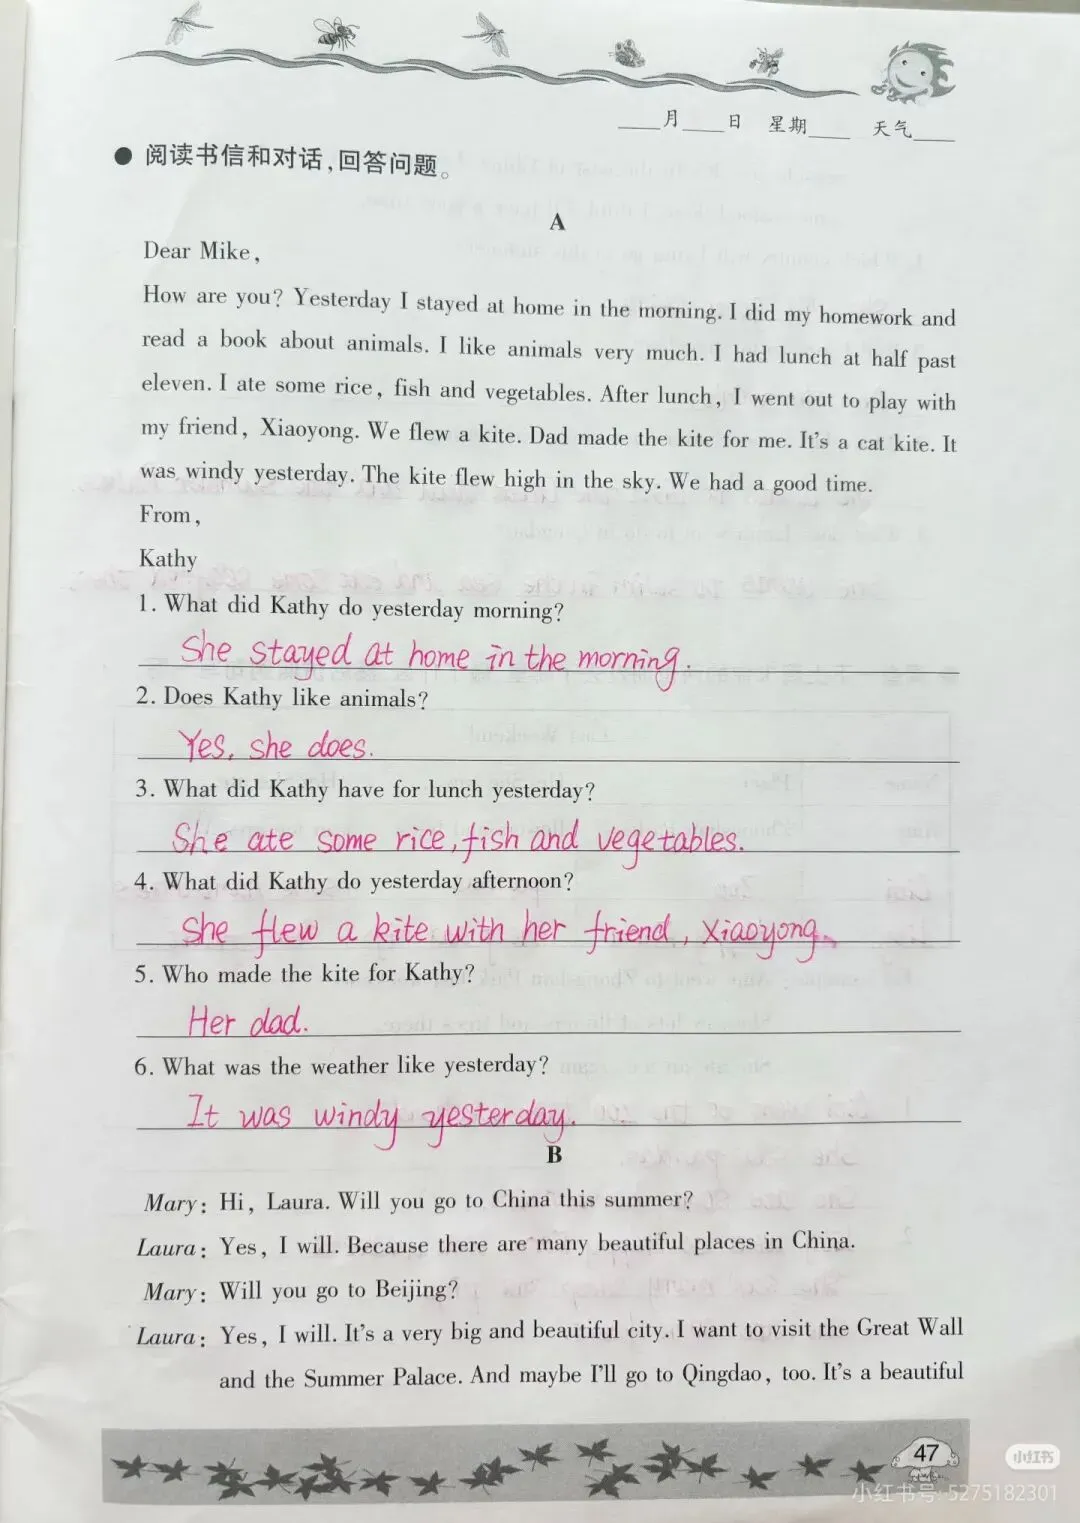 ____月____日 星期____ 天气____
● 阅读书信和对话,回答问题。
A
Dear Mike,
How are you? Yesterday I stayed at home in the morning. I did my homework and
read a book about animals. I like animals very much. I had lunch at half past
eleven. I ate some rice, fish and vegetables. After lunch, I went out to play with
my friend, Xiaoyong. We flew a kite. Dad made the kite for me. It's a cat kite. It
was windy yesterday. The kite flew high in the sky. We had a good time.
From,
Kathy
1. What did Kathy do yesterday morning?
She stayed at home in the morning.
2. Does Kathy like animals?
Yes, she does.
3. What did Kathy have for lunch yesterday?
She ate some rice, fish and vegetables.
4. What did Kathy do yesterday afternoon?
She flew a kite with her friend, Xiaoyong.
5. Who made the kite for Kathy?
Her dad.
6. What was the weather like yesterday?
It was windy yesterday.
B
Mary: Hi, Laura. Will you go to China this summer?
Laura: Yes, I will. Because there are many beautiful places in China.
Mary: Will you go to Beijing?
Laura: Yes, I will. It's a very big and beautiful city. I want to visit the Great Wall
and the Summer Palace. And maybe I'll go to Qingdao, too. It's a beautiful
47
小红书
小红书号: 5275182301